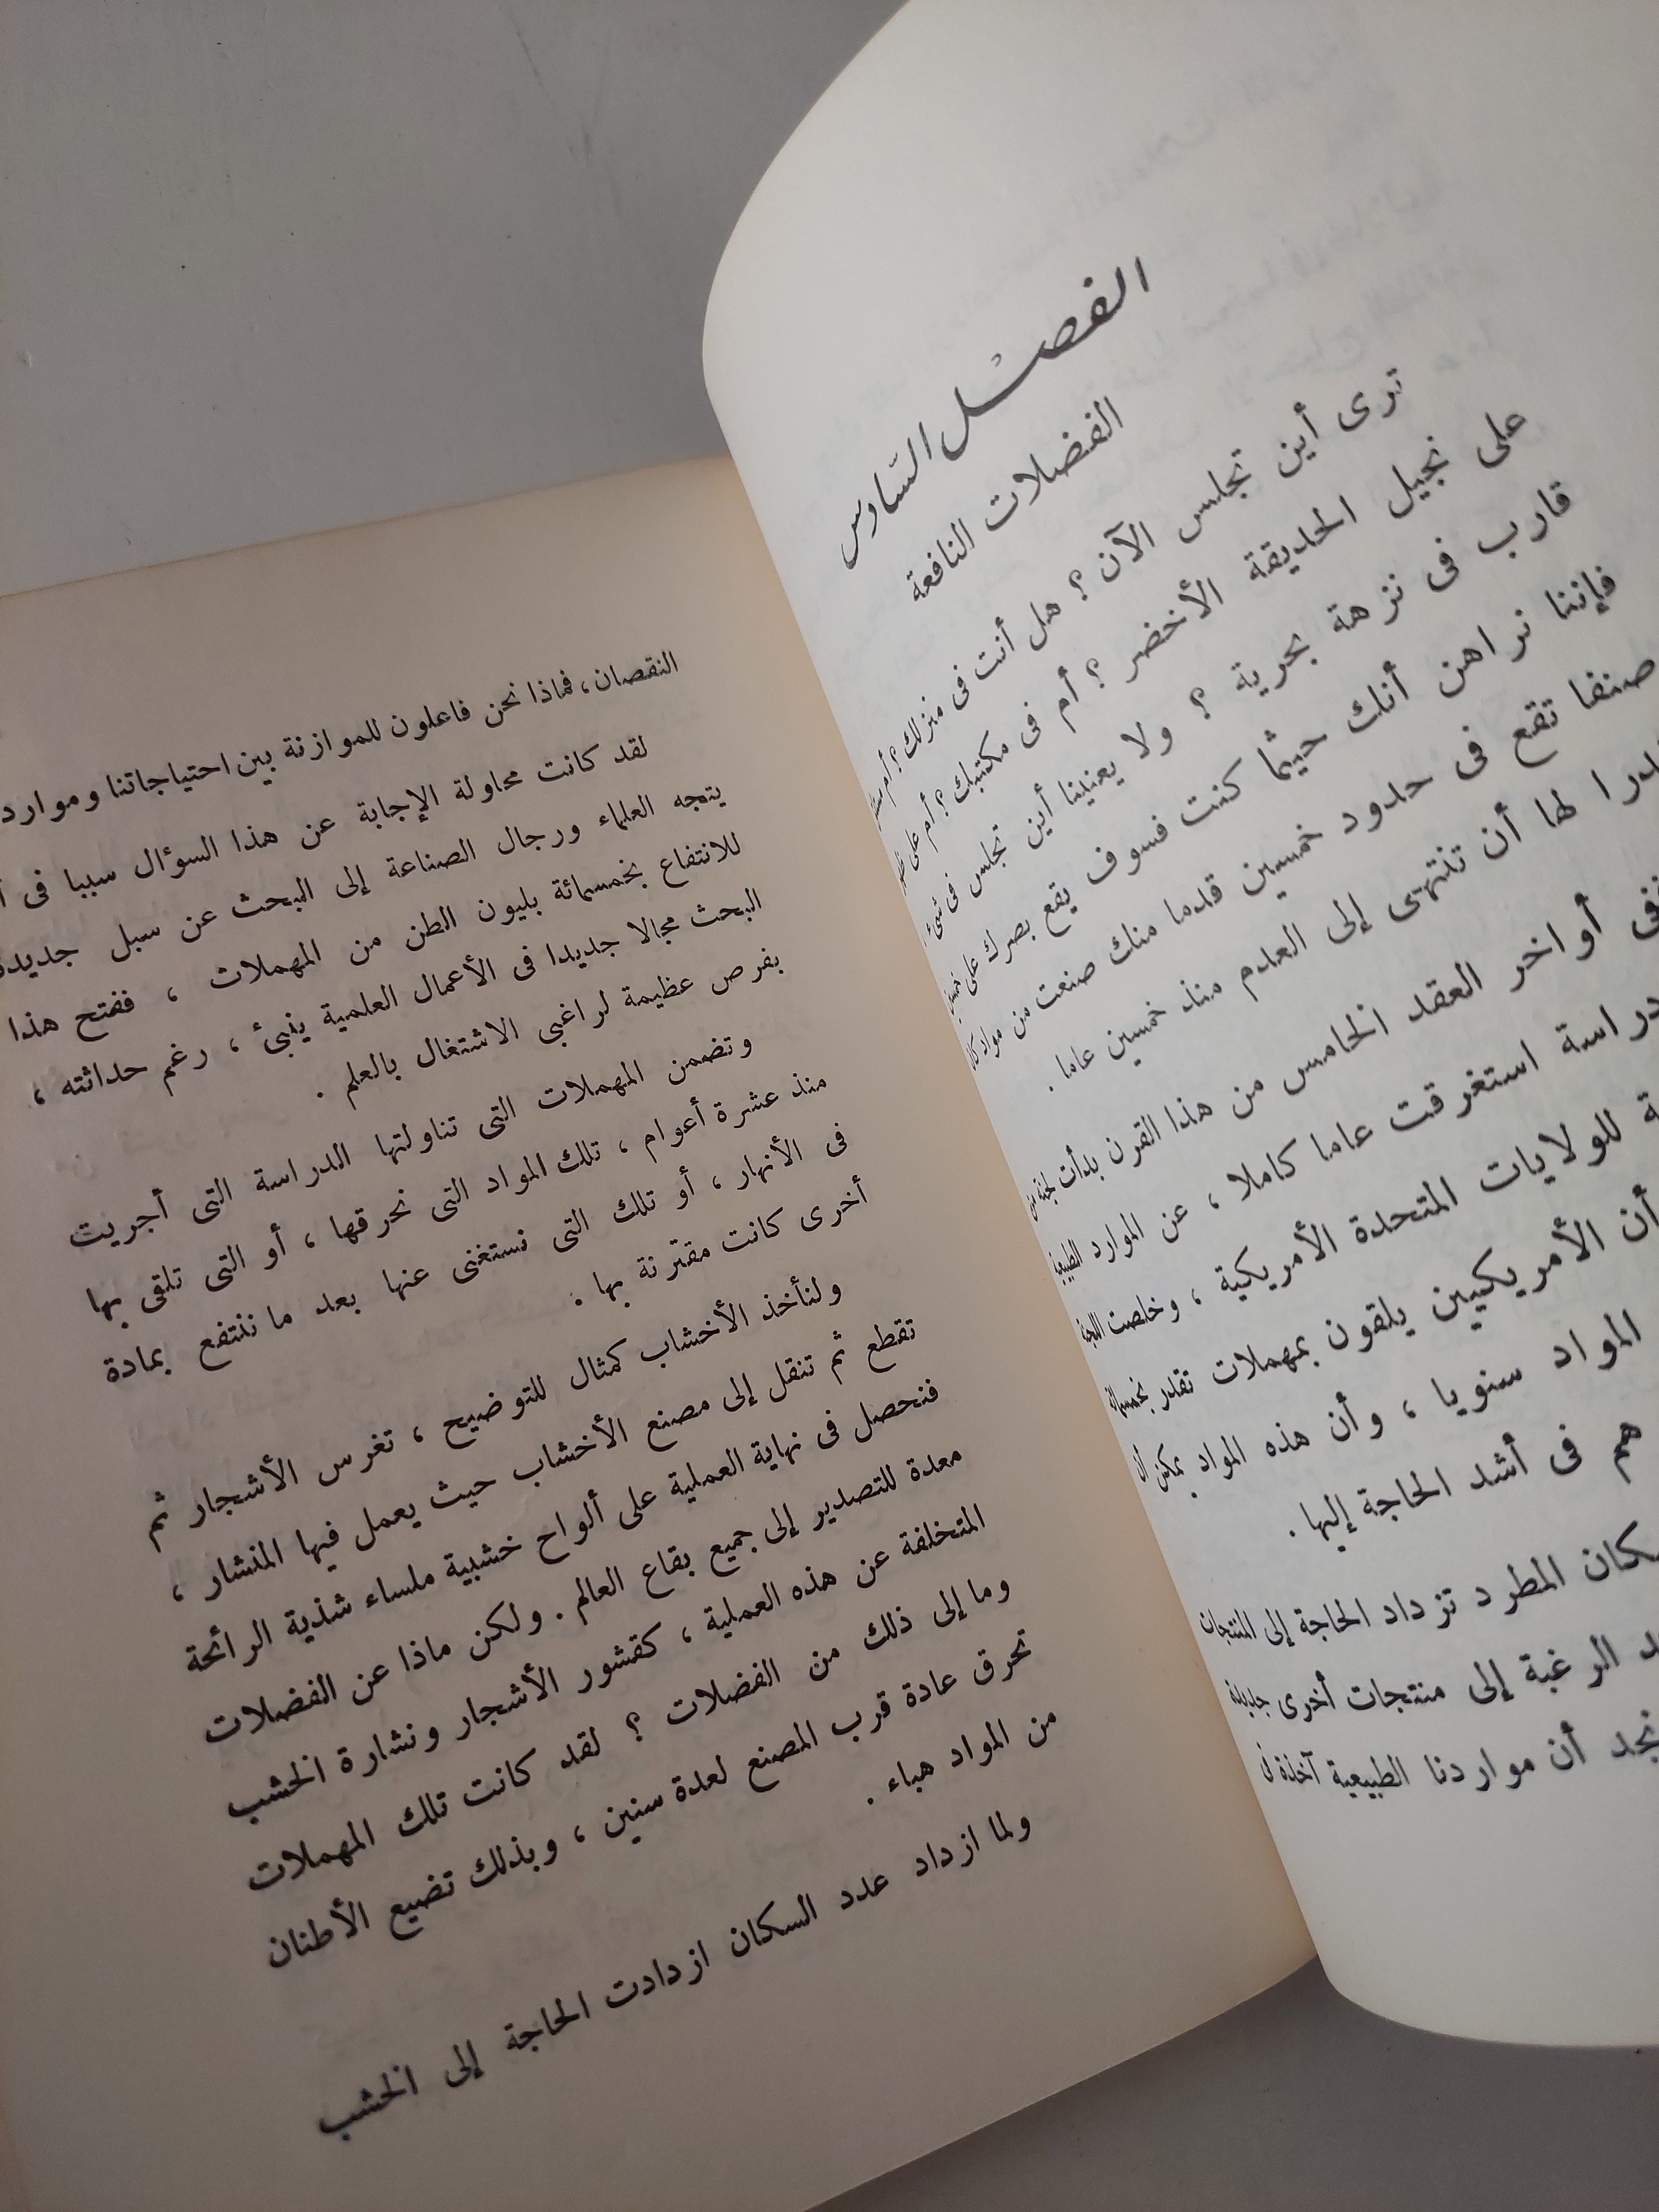 الفصل السادس
الفضلات النافعة
ترى أين تجلس الآن ؟ هل أنت فى منزلك ؟ أم
على نجيل الحديقة الأخضر ؟ أم فى مكتبك ؟ أم على
قارب فى نزهة بحرية ؟ ولا يعنينا أين تجلس فى شىء
فإننا نراهن أنك حيثما كنت فسوف يقع بصرك على
صنفا تقع فى حدود خمسين قدما منك صنعت من مواد
لها أن تنتهى إلى العدم منذ خمسين عاما .
أواخر العقد الخامس من هذا القرن بدأت لجنة من
استغرقت عاما كاملا ، عن الموارد الطبيعية
للولايات المتحدة الأمريكية ، وخلصت اللجنة
أن الأمريكيين يلقون بمهملات تقدر بخمسمائة
المواد سنويا ، وأن هذه المواد يمكن أن
هم فى أشد الحاجة إليها .
المطرد تزداد الحاجة إلى المنتجات
الرغبة إلى منتجات أخرى جديدة
نجد أن مواردنا الطبيعية آخذة فى
النقصان ، فماذا نحن فاعلون للموازنة بين احتياجاتنا
لقد كانت محاولة الإجابة عن هذا السؤال سببا فى
يتجه العلماء ورجال الصناعة إلى البحث عن سبل جديدة
للانتفاع بخمسمائة بليون الطن من المهملات ، ففتح هذا
البحث مجالا جديدا فى الأعمال العلمية ينبئ ، رغم حداثته ،
بفرص عظيمة لراغبى الاشتغال بالعلم .
وتضمن المهملات التى تناولتها الدراسة التى أجريت
منذ عشرة أعوام ، تلك المواد التى نحرقها ، أو التى تلقى بها
فى الأنهار ، أو تلك التى نستغنى عنها بعد ما ننتفع بمادة
أخرى كانت مقترنة بها .
ولنأخذ الأخشاب كمثال للتوضيح ، تغرس الأشجار ثم
تقطع ثم تنقل إلى مصنع الأخشاب حيث يعمل فيها المنشار ،
فنحصل فى نهاية العملية على ألواح خشبية ملساء شذية الرائحة
معدة للتصدير إلى جميع بقاع العالم . ولكن ماذا عن الفضلات
المتخلفة عن هذه العملية ، كقشور الأشجار ونشارة الخشب
وما إلى ذلك من الفضلات ؟ لقد كانت تلك المهملات
تحرق عادة قرب المصنع لعدة سنين ، وبذلك تضيع الأطنان
من المواد هباء .
ولما ازداد عدد السكان ازدادت الحاجة إلى الخشب